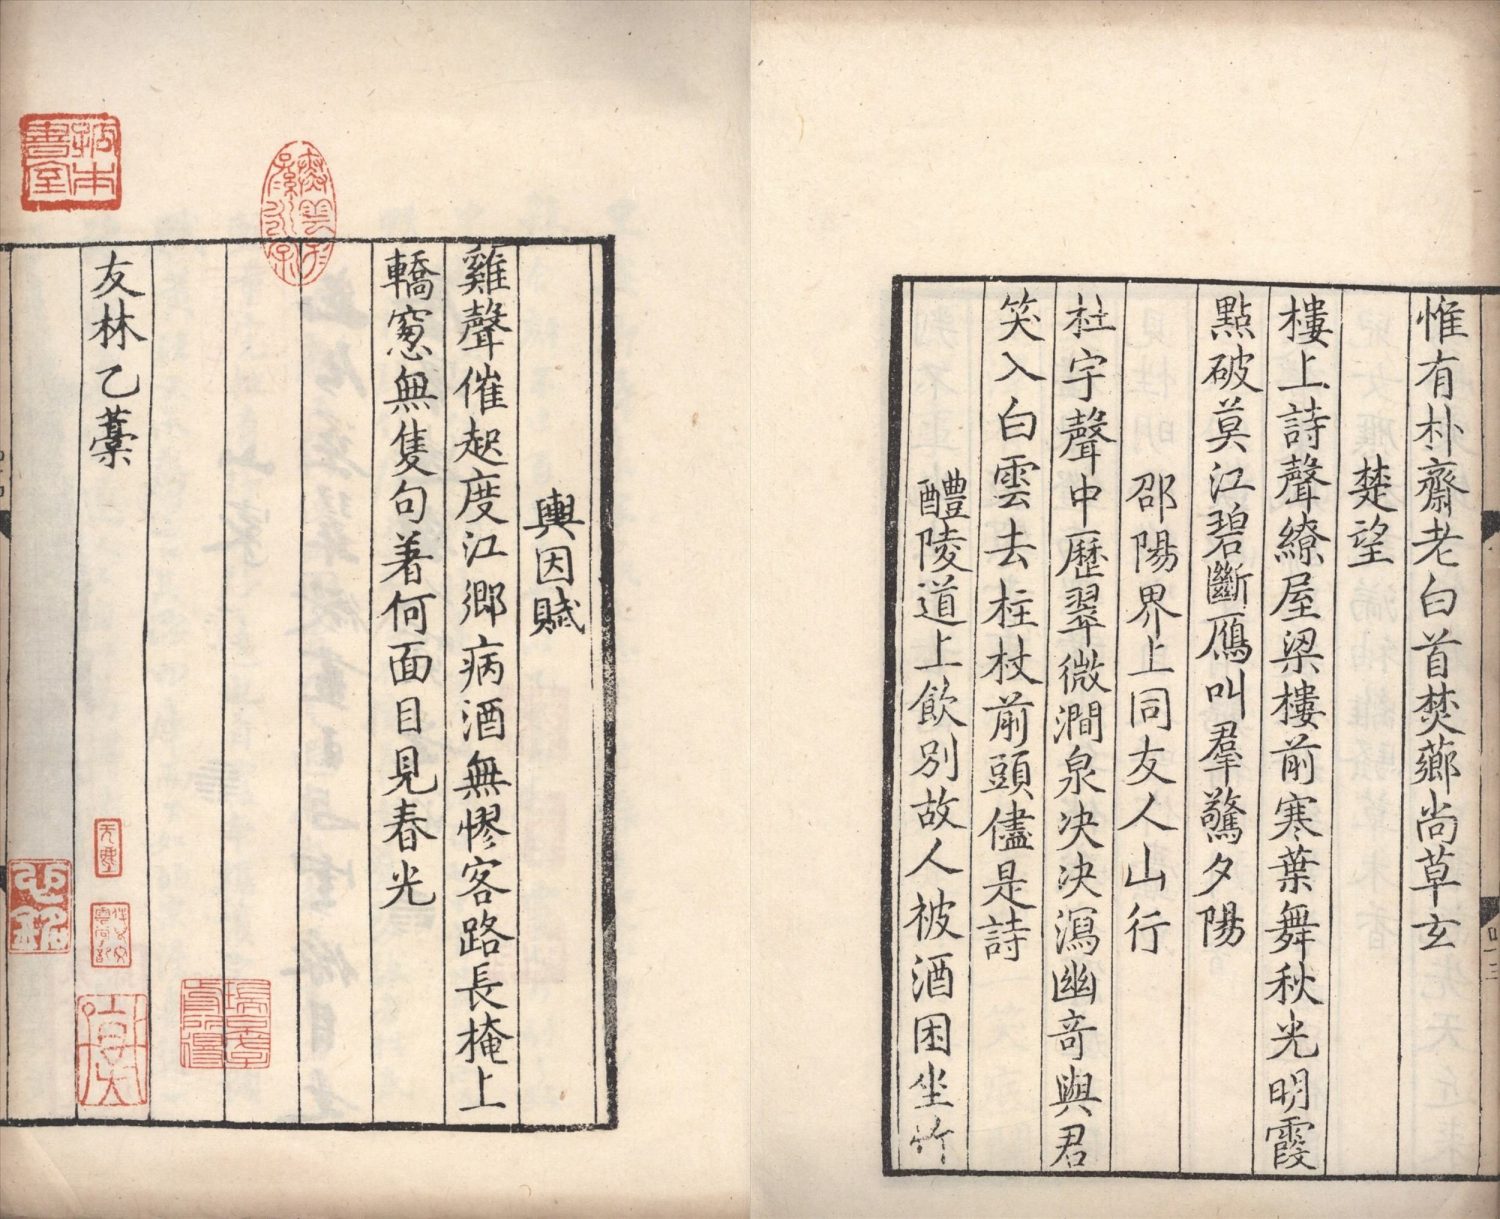 惟有朴齋老白首焚薌尚草玄
楚望
樓上詩聲繚屋梁樓前寒葉舞秋光明霞
點破莫江碧斷鴈叫羣驚夕陽
邵陽界上同友人山行
杜宇聲中歷翠微澗泉决决瀉幽奇與君
笑入白雲去柱杖前頭儘是詩
醴陵道上飲別故人被酒困坐竹
輿因賦
雞聲催起度江鄉病酒無憀客路長掩上
轎窻無隻句着何面目見春光
友林乙藁
孤本書室